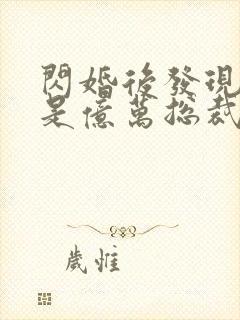 閃婚後發現
是億萬總裁
歲惟